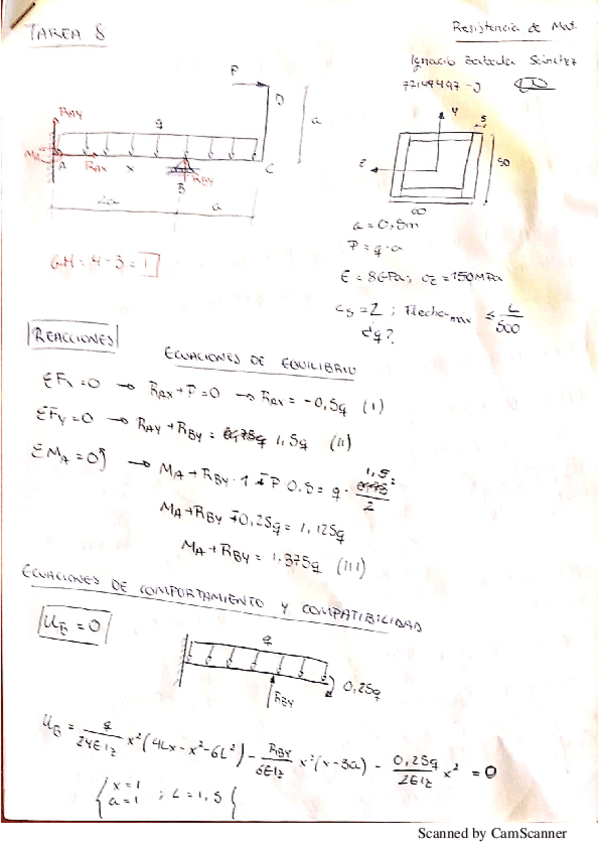 TAREA 8
Resistencia de Mat.
Ignacio Sánchez
P
D
a
RAY
q
MA
A
RAX
x
B
RBY
C
2a
a
y
5
z
50
60
a = 0,5m
P = q·a
E = 8GPa; σE = 150MPa
GH = 4 - 3 = 1
CS = 2 ; Flecha max ≤ L/500
¿q?
REACCIONES
ECUACIONES DE EQUILIBRIO
ΣFx = 0 → RAX + P = 0 → RAX = -0,5q (I)
ΣFy = 0 → RAY + RBY = 1,5q (II)
ΣMA = 0 → MA + RBY · 1 - P · 0,5 = q · 1,5²/2
MA + RBY - 0,25q = 1,125q
MA + RBY = 1,375q (III)
ECUACIONES DE COMPORTAMIENTO Y COMPATIBILIDAD
UB = 0
q
0,25q
RBY
UB = q/24EIz x²(4Lx - x² - 6L²) - RBY/6EIz x²(x - 3a) - 0,25q/2EIz x² = 0
{ x = 1
a = 1 ; L = 1,5 {
Scanned by CamScanner